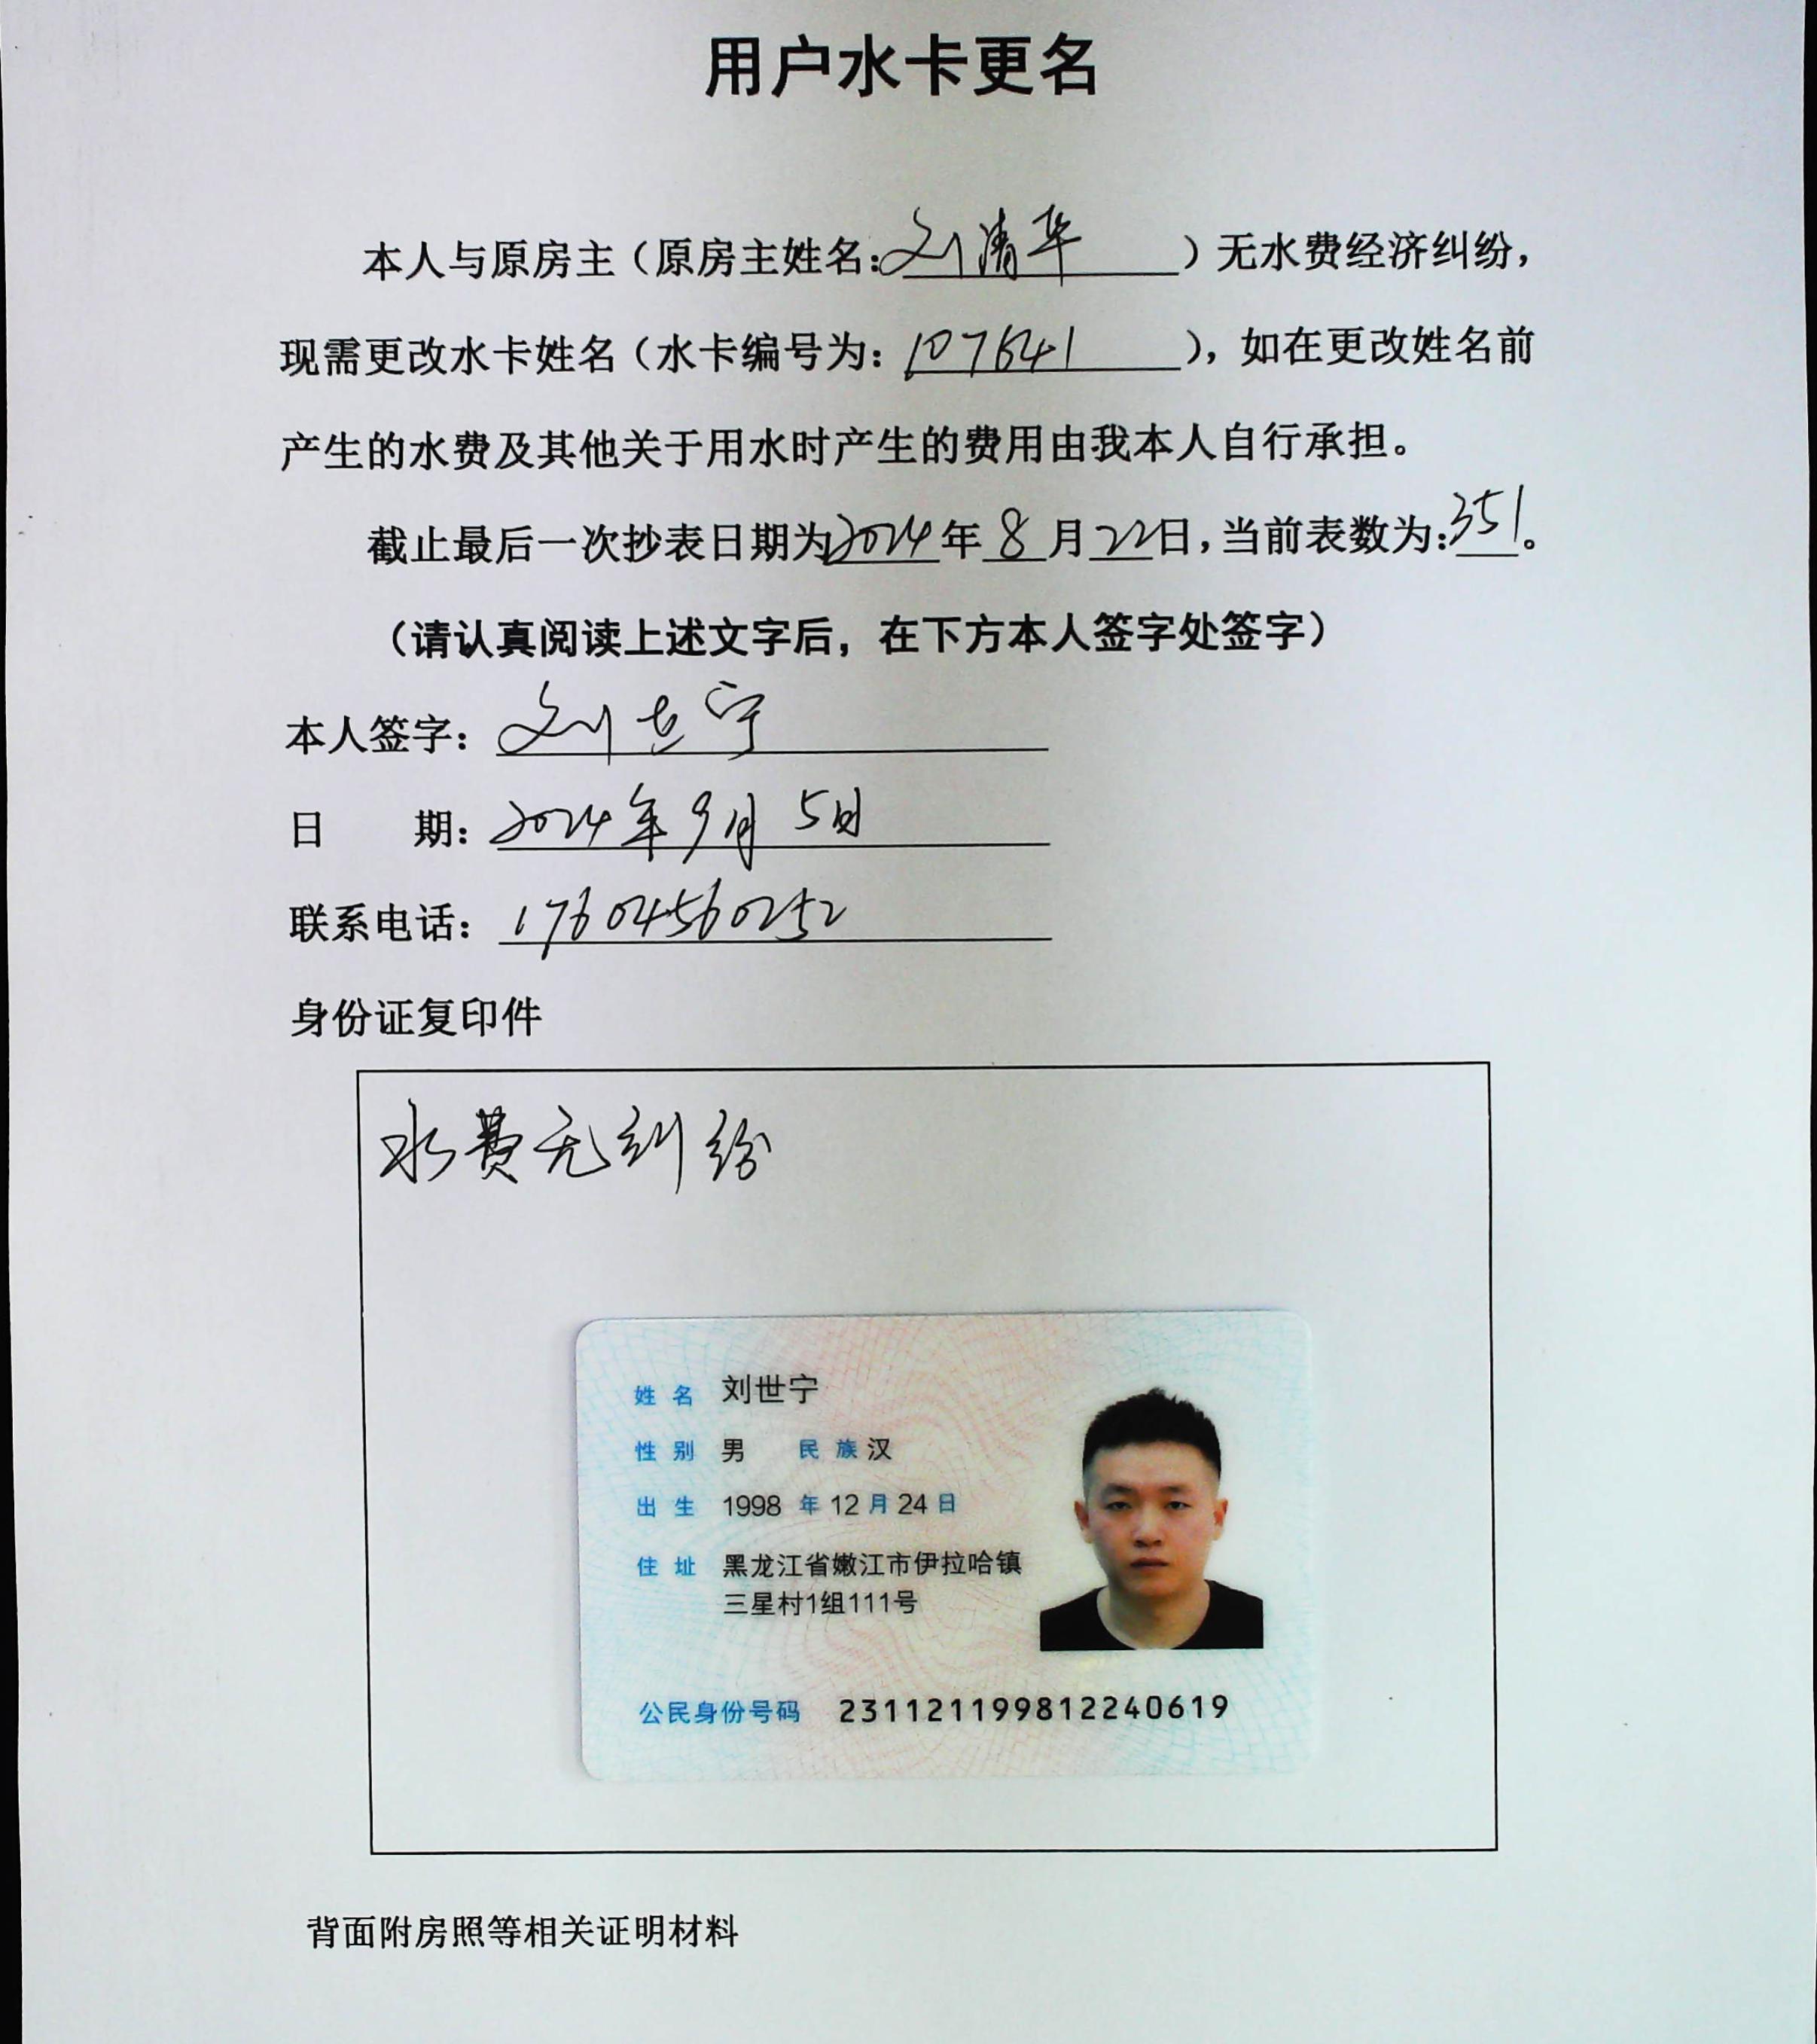 用户水卡更名
本人与原房主（原房主姓名：刘清华）无水费经济纠纷，
现需更改水卡姓名（水卡编号为：107641），如在更改姓名前
产生的水费及其他关于用水时产生的费用由我本人自行承担。
截止最后一次抄表日期为2024年8月22日，当前表数为：351。
（请认真阅读上述文字后，在下方本人签字处签字）
本人签字：刘世宁
日 期：2024年9月5日
联系电话：17604560252
身份证复印件
水费无纠纷
姓名 刘世宁
性别 男 民族 汉
出生 1998 年 12 月 24 日
住址 黑龙江省嫩江市伊拉哈镇
三星村1组111号
公民身份号码 231121199812240619
背面附房照等相关证明材料